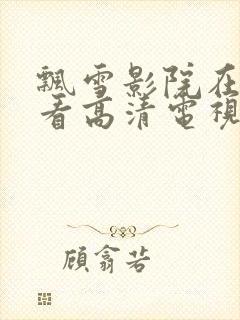 飄雪影院在
看高清電視
顧翕若